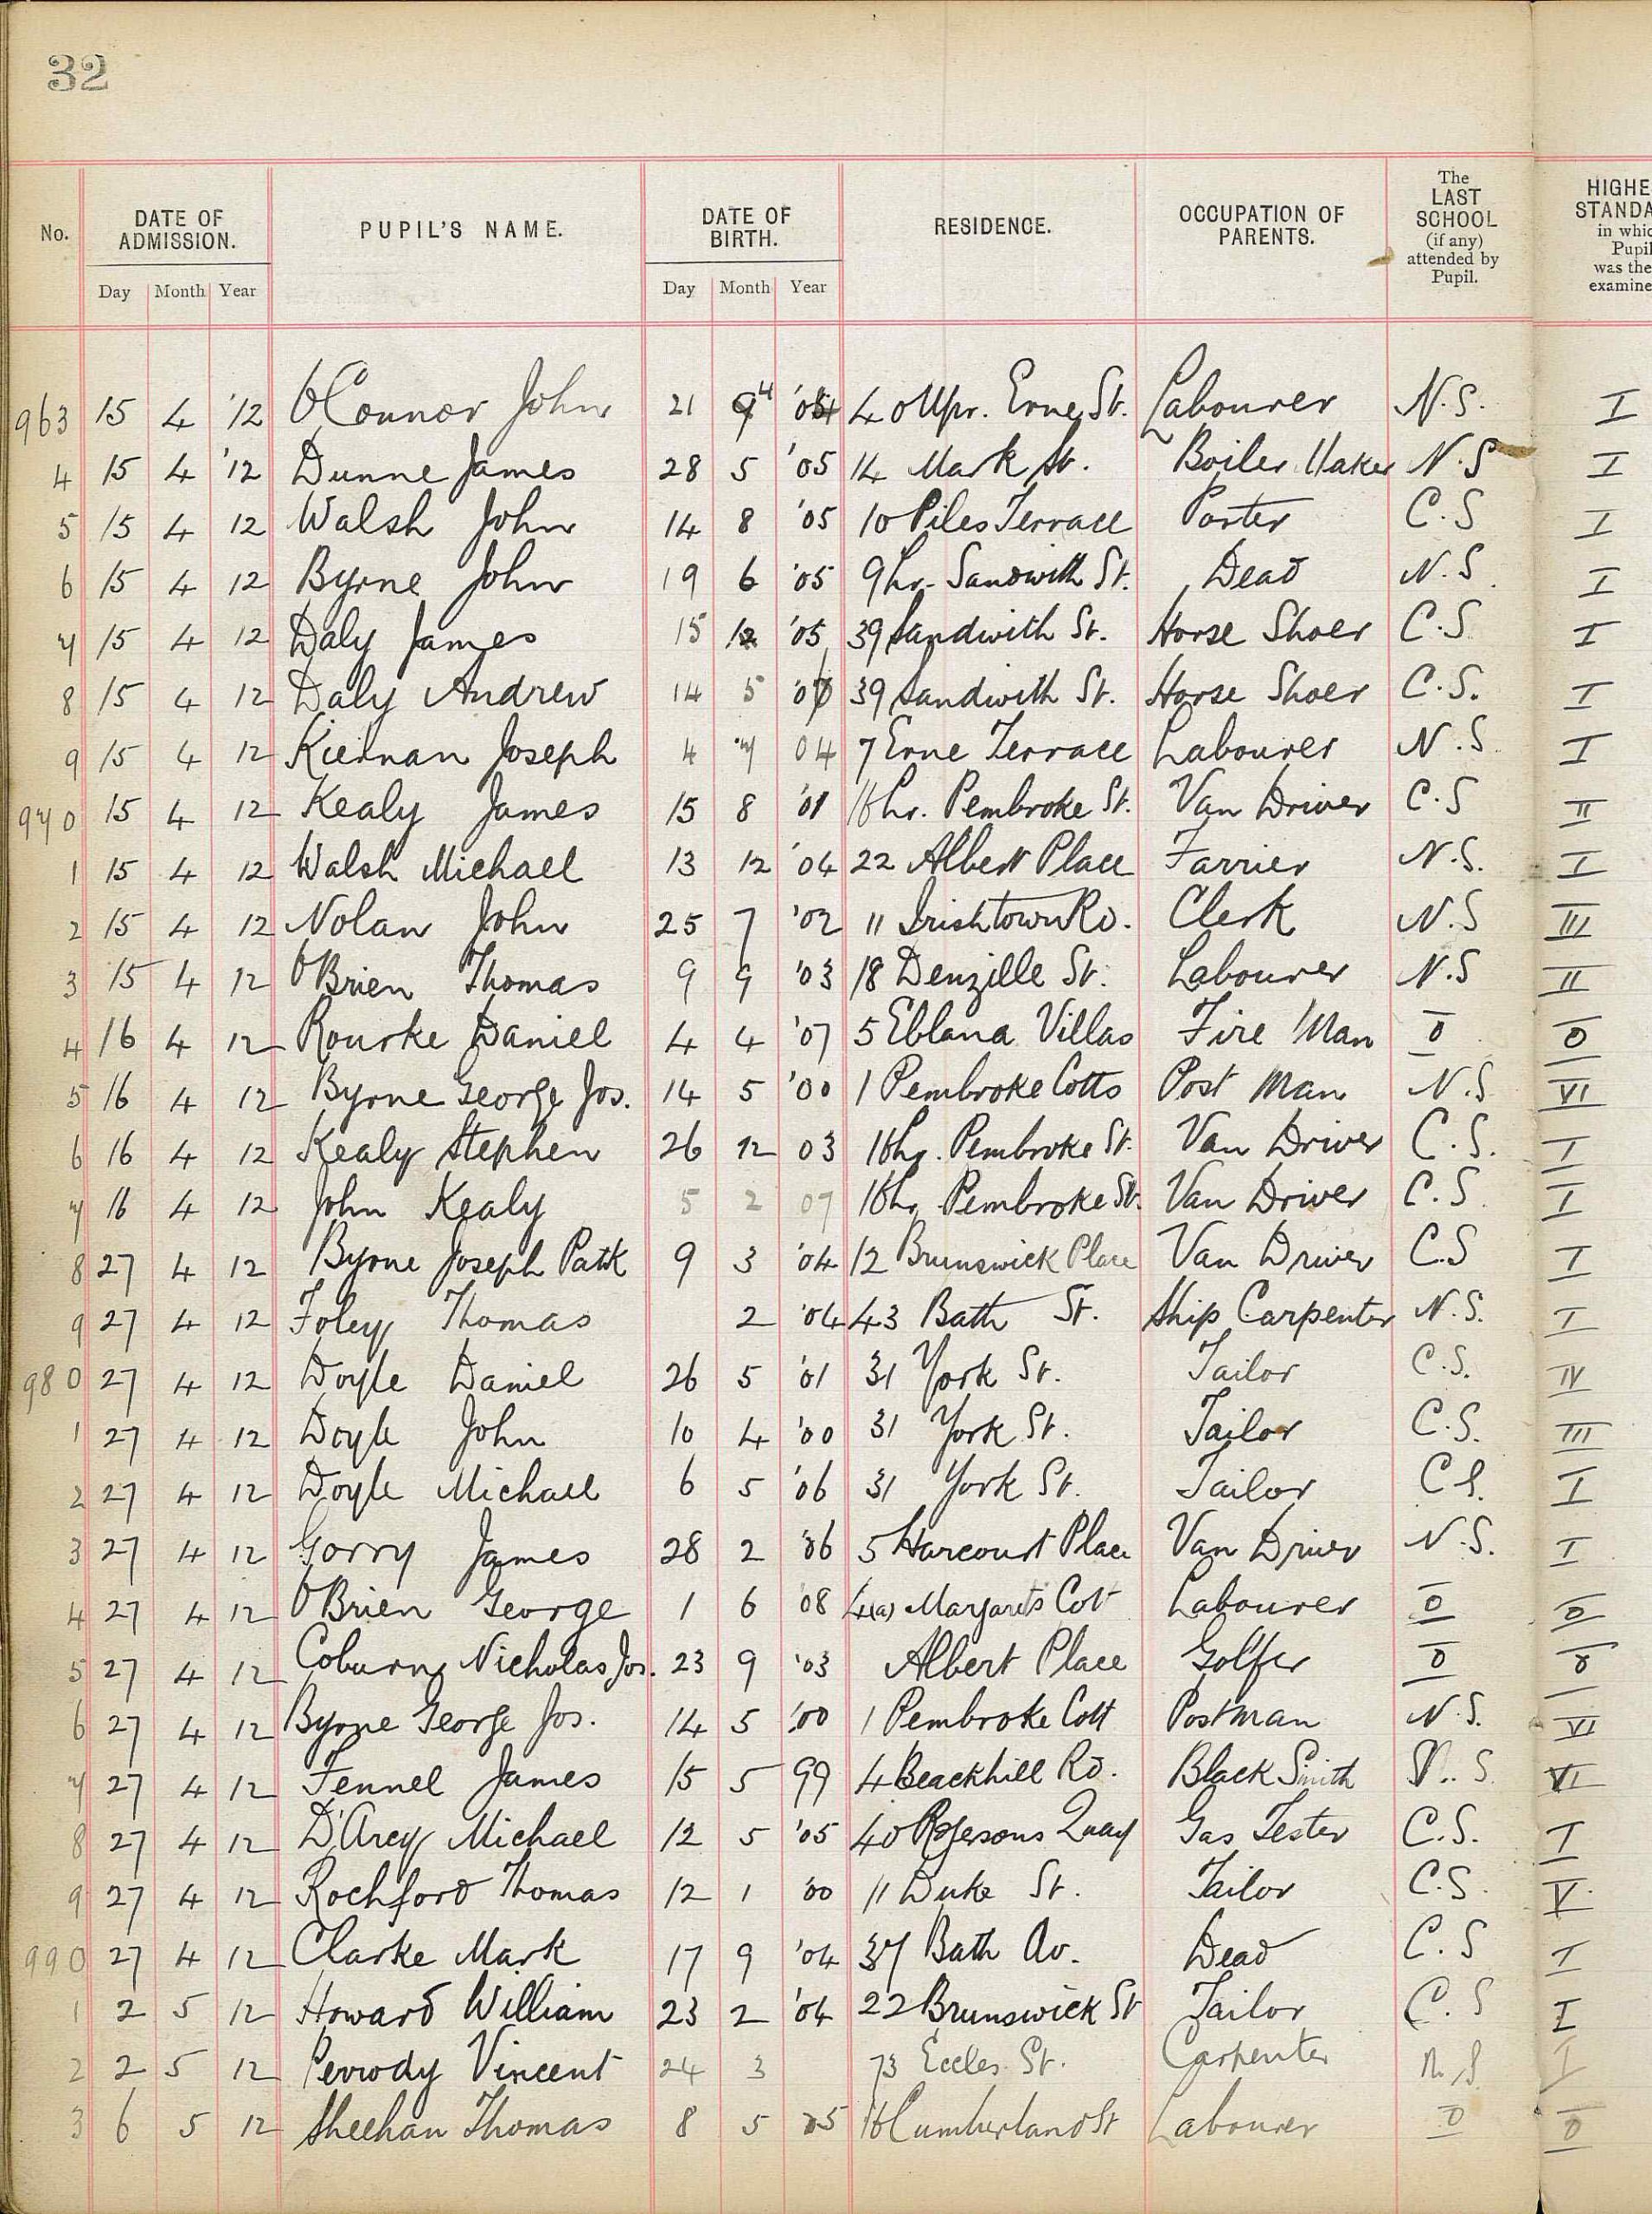 32
No. DATE OF ADMISSION. PUPIL'S NAME. DATE OF BIRTH. RESIDENCE. OCCUPATION OF PARENTS. The LAST SCHOOL (if any) attended by Pupil. HIGHE STANDA in whic Pupil was the examine
Day Month Year Day Month Year
963 15 4 '12 O'Connor John 21 4 40 Upr. Erne St. Labourer N.S. I
4 15 4 '12 Dunne James 28 5 '05 14 Mark St. Boiler Maker N.S I
5 15 4 12 Walsh John 14 8 '05 10 Piles Terrace Porter C.S I
6 15 4 12 Byrne John 19 6 '05 9 Lr. Sandwith St. Dead N.S. I
7 15 4 12 Daly James 15 12 '05 39 Sandwith St. Horse Shoer C.S I
8 15 4 12 Daly Andrew 14 5 39 Sandwith St. Horse Shoer C.S. I
9 15 4 12 Kiernan Joseph 4 7 04 7 Erne Terrace Labourer N.S. I
970 15 4 12 Kealy James 15 8 '01 16 Lr. Pembroke St. Van Driver C.S II
1 15 4 12 Walsh Michael 13 12 '04 22 Albert Place Farrier N.S. I
2 15 4 12 Nolan John 25 7 '02 11 Irishtown Rd. Clerk N.S III
3 15 4 12 O'Brien Thomas 9 9 '03 18 Denzille St. Labourer N.S II
4 16 4 12 Rourke Daniel 4 4 '07 5 Eblana Villas Fire Man 0 0
5 16 4 12 Byrne George Jos. 14 5 '00 1 Pembroke Cotts Post Man N.S. VI
6 16 4 12 Kealy Stephen 26 12 03 16 Lr. Pembroke St. Van Driver C.S. I
7 16 4 12 John Kealy 5 2 07 16 Lr. Pembroke St. Van Driver C.S. I
8 27 4 12 Byrne Joseph Patk 9 3 '04 12 Brunswick Place Van Driver C.S I
9 27 4 12 Foley Thomas 2 '04 43 Bath St. Ship Carpenter N.S. I
980 27 4 12 Doyle Daniel 26 5 '01 31 York St. Tailor C.S. IV
1 27 4 12 Doyle John 10 4 '00 31 York St. Tailor C.S. III
2 27 4 12 Doyle Michael 6 5 '06 31 York St. Tailor C S. I
3 27 4 12 Gorry James 28 2 '06 5 Harcourt Place Van Driver N.S. I
4 27 4 12 O'Brien George 1 6 '08 4(a) Margarets Cot Labourer 0 0
5 27 4 12 Coburn Nicholas Jos. 23 9 '03 Albert Place Golfer 0 0
6 27 4 12 Byrne George Jos. 14 5 '00 1 Pembroke Cott Postman N.S. VI
7 27 4 12 Fennel James 15 5 99 4 Beackhill Rd. Black Smith N.S. VI
8 27 4 12 D'Arcy Michael 12 5 '05 40 Rogersons Quay Gas Tester C.S. I
9 27 4 12 Rochford Thomas 12 1 '00 11 Duke St. Tailor C.S. V
990 27 4 12 Clarke Mark 17 9 '04 37 Bath Av. Dead C.S I
1 2 5 12 Howard William 23 2 '04 22 Brunswick St Tailor C.S I
2 2 5 12 Perrody Vincent 24 3 73 Eccles St. Carpenter N.S I
3 6 5 12 Sheehan Thomas 8 5 05 16 Cumberland St Labourer 0 0